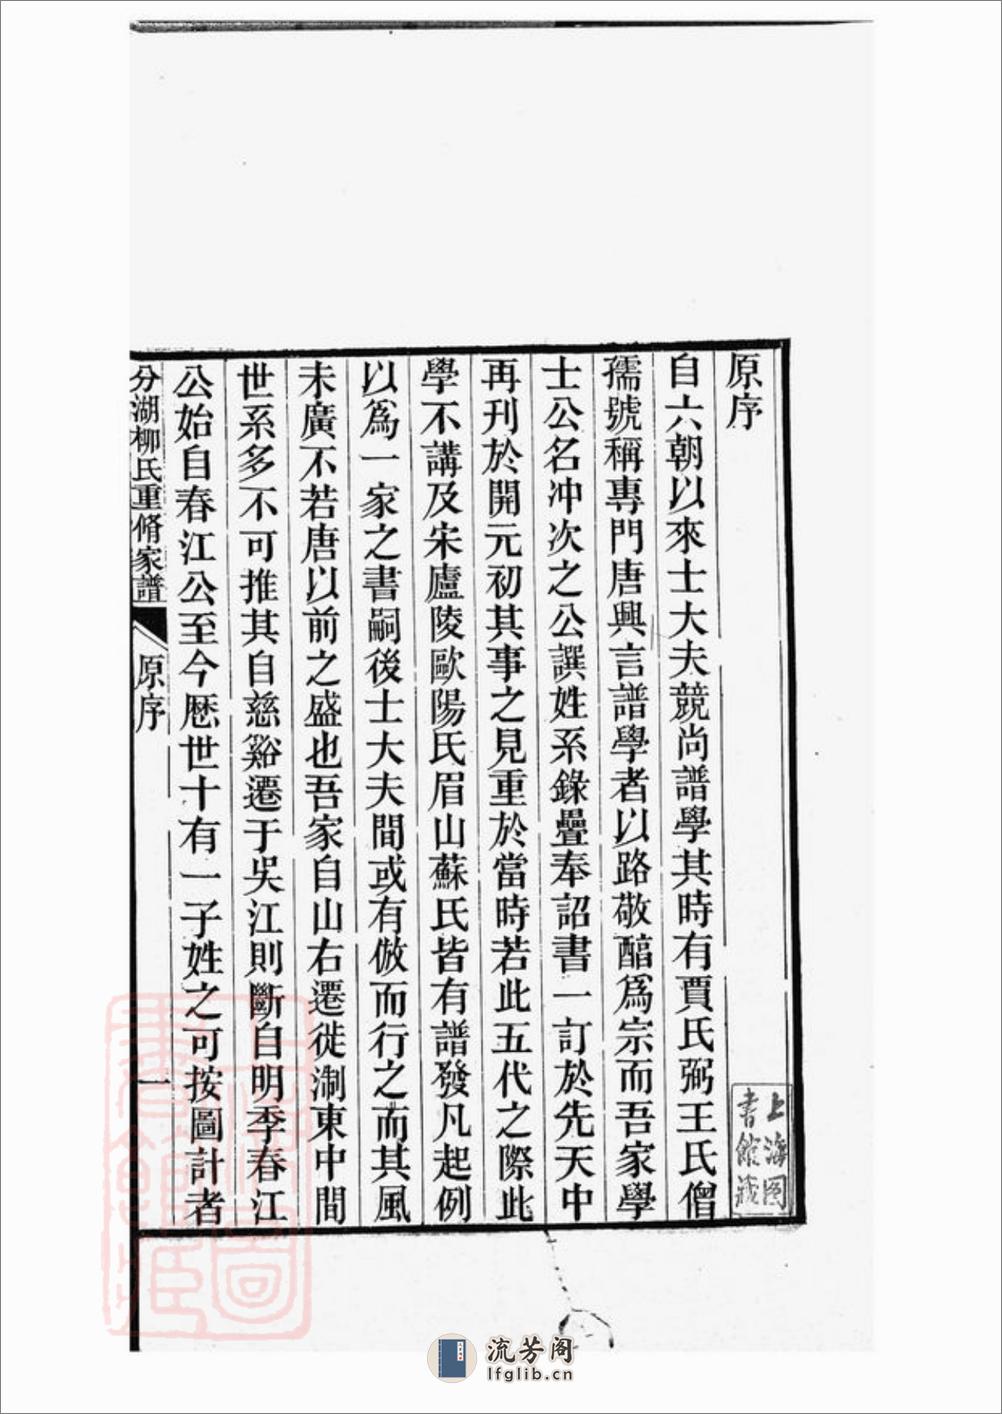 原序
自六朝以來士大夫競尚譜學其時有賈氏弼王氏僧
孺號稱專門唐興言譜學者以路敬醕爲宗而吾家學
士公名冲次之公譔姓系錄疊奉詔書一訂於先天中
再刊於開元初其事之見重於當時若此五代之際此
學不講及宋廬陵歐陽氏眉山蘇氏皆有譜發凡起例
以爲一家之書嗣後士大夫間或有倣而行之而其風
未廣不若唐以前之盛也吾家自山右遷徙淛東中間
世系多不可推其自慈谿遷于吳江則斷自明季春江
公始自春江公至今厯世十有一子姓之可按圖計者
分湖柳氏重脩家譜
原序
一
上海图
書館藏
流芳阁
lfglib.cn